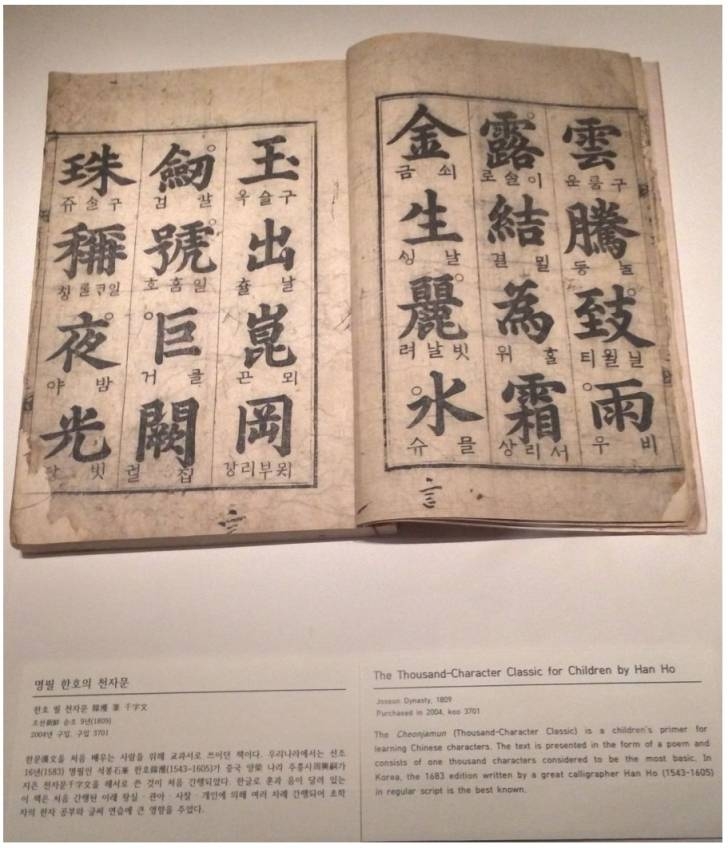 雲 구룸 운 騰 놀 등 致 닐월 티 雨 비 우
露 이슬 로 結 밀 결 為 홀 위 霜 서리 상
金 쇠 금 生 날 싱 麗 빗날 려 水 믈 슈
玉 구슬 옥 出 날 츌 崑 뫼 곤 岡 묏부리 강
劒 칼 검 號 일홈 호 巨 클 거 闕 집 궐
珠 구슬 쥬 稱 일쿠롤 칭 夜 밤 야 光 빗
명필 한호의 천자문
한호 필 천자문 韓濩 筆 千字文
조선朝鮮 순조 9년(1809)
2004년 구입, 구입 3701
한문漢文을 처음 배우는 사람을 위해 교과서로 쓰이던 책이다. 우리나라에서는 선조
16년(1583) 명필인 석봉石峯 한호韓濩(1543-1605)가 중국 양梁 나라 주흥사周興嗣가
지은 천자문千字文을 해서로 쓴 것이 처음 간행되었다. 한글로 훈과 음이 달려 있는
이 책은 처음 간행된 이래 왕실·관아·사찰·개인에 의해 여러 차례 간행되어 초학
자의 한자 공부와 글씨 연습에 큰 영향을 주었다.
The Thousand-Character Classic for Children by Han Ho
Joseon Dynasty, 1809
Purchased in 2004, koo 3701
The Cheonjamun (Thousand-Character Classic) is a children's primer for
learning Chinese characters. The text is presented in the form of a poem and
consists of one thousand characters considered to be the most basic. In
Korea, the 1683 edition written by a great calligrapher Han Ho (1543-1605)
in regular script is the best known.